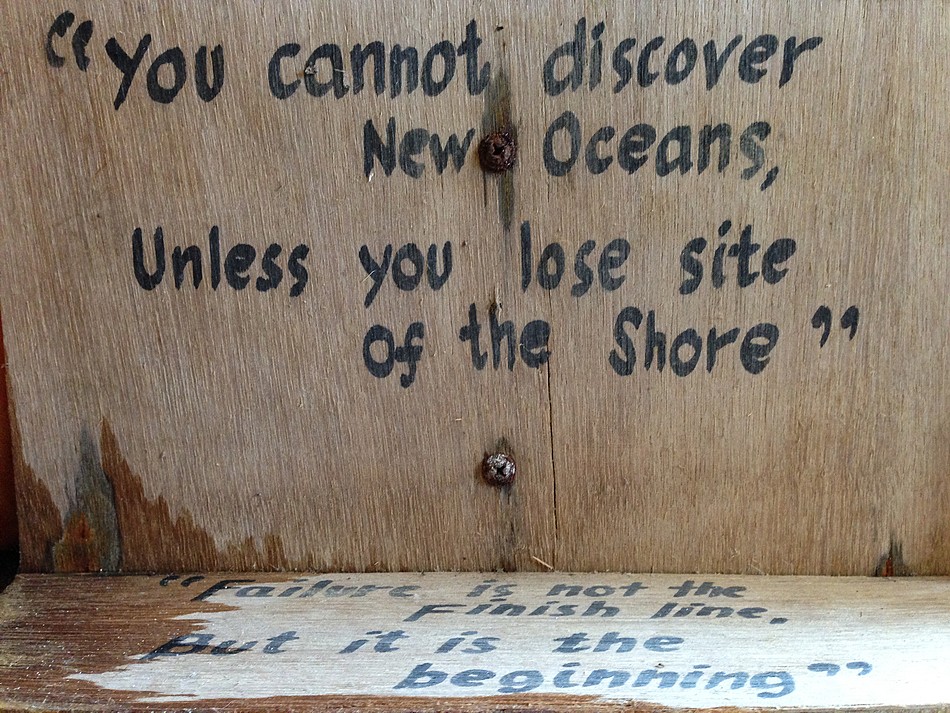 “You cannot discover
New Oceans,
Unless you lose site
of the Shore”
“Failure is not the
Finish line,
But it is the
beginning”